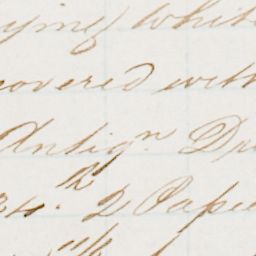 ying White
covered with
Antign Dr
34. 2 Pape